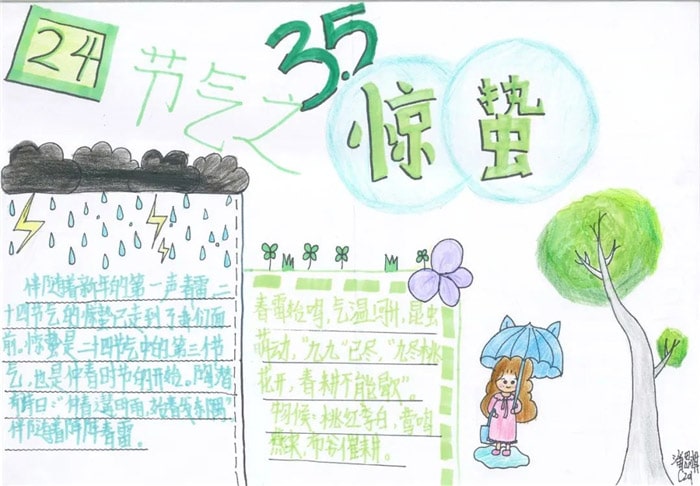 24
节气之
3.5
惊蛰
伴随着新年的第一声春雷,二
十四节气的惊蛰已走到了我们面
前。惊蛰是二十四节气中的第三个节
气,也是仲春时节的开始。陶潜
有诗曰:“仲春遘时雨,始雷发东隅”
伴随着阵阵春雷。
春雷始鸣,气温回升,昆虫
萌动,“九九”已尽,“九尽桃
花开,春耕不能歇”。
物候:桃红李白,莺鸣
燕来,布谷催耕。